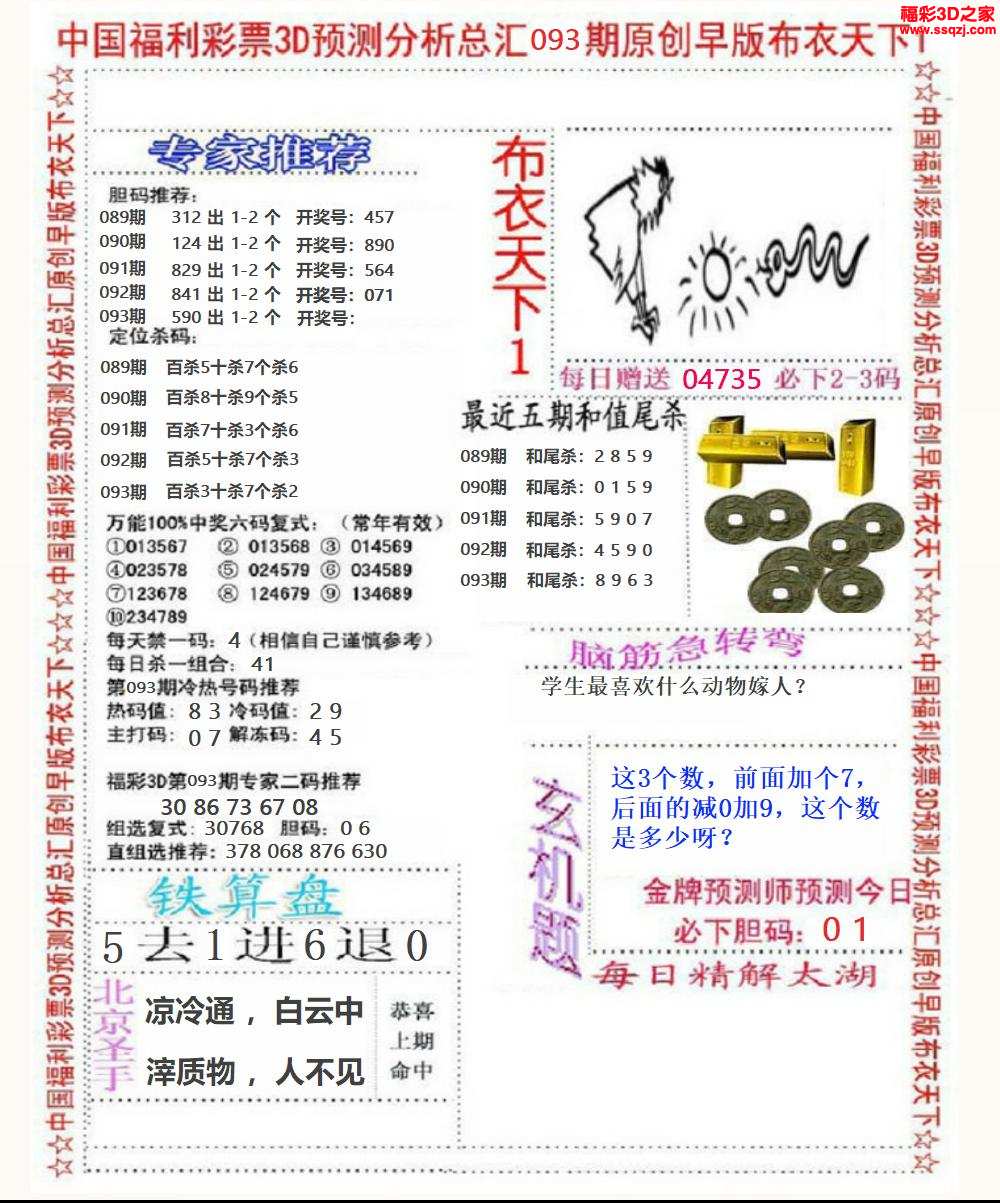 福彩3D之家
www.ssqzj.com
中国福利彩票3D预测分析总汇093期原创早版布衣天下1
☆☆中国福利彩票3D预测分析总汇原创早版布衣天下☆☆中国福利彩票3D预测分析总汇原创早版布衣天下☆☆
专家推荐
胆码推荐:
089期 312 出 1-2 个 开奖号: 457
090期 124 出 1-2 个 开奖号: 890
091期 829 出 1-2 个 开奖号: 564
092期 841 出 1-2 个 开奖号: 071
093期 590 出 1-2 个 开奖号:
定位杀码:
089期 百杀5十杀7个杀6
090期 百杀8十杀9个杀5
091期 百杀7十杀3个杀6
092期 百杀5十杀7个杀3
093期 百杀3十杀7个杀2
万能100%中奖六码复式: (常年有效)
①013567 ② 013568 ③ 014569
④023578 ⑤ 024579 ⑥ 034589
⑦123678 ⑧ 124679 ⑨ 134689
⑩234789
每天禁一码: 4 (相信自己谨慎参考)
每日杀一组合: 41
第093期冷热号码推荐
热码值: 8 3 冷码值: 2 9
主打码: 0 7 解冻码: 4 5
福彩3D第093期专家二码推荐
30 86 73 67 08
组选复式: 30768 胆码: 0 6
直组选推荐: 378 068 876 630
铁算盘
5去1进6退0
北京圣手
凉冷通，白云中
滓质物，人不见
恭喜
上期
命中
布衣天下1
每日赠送 04735 必下2-3码
最近五期和值尾杀
089期 和尾杀: 2 8 5 9
090期 和尾杀: 0 1 5 9
091期 和尾杀: 5 9 0 7
092期 和尾杀: 4 5 9 0
093期 和尾杀: 8 9 6 3
脑筋急转弯
学生最喜欢什么动物嫁人？
玄机题
这3个数，前面加个7，
后面的减0加9，这个数
是多少呀？
金牌预测师预测今日
必下胆码: 0 1
每日精解太湖
☆☆中国福利彩票3D预测分析总汇原创早版布衣天下☆☆中国福利彩票3D预测分析总汇原创早版布衣天下☆☆